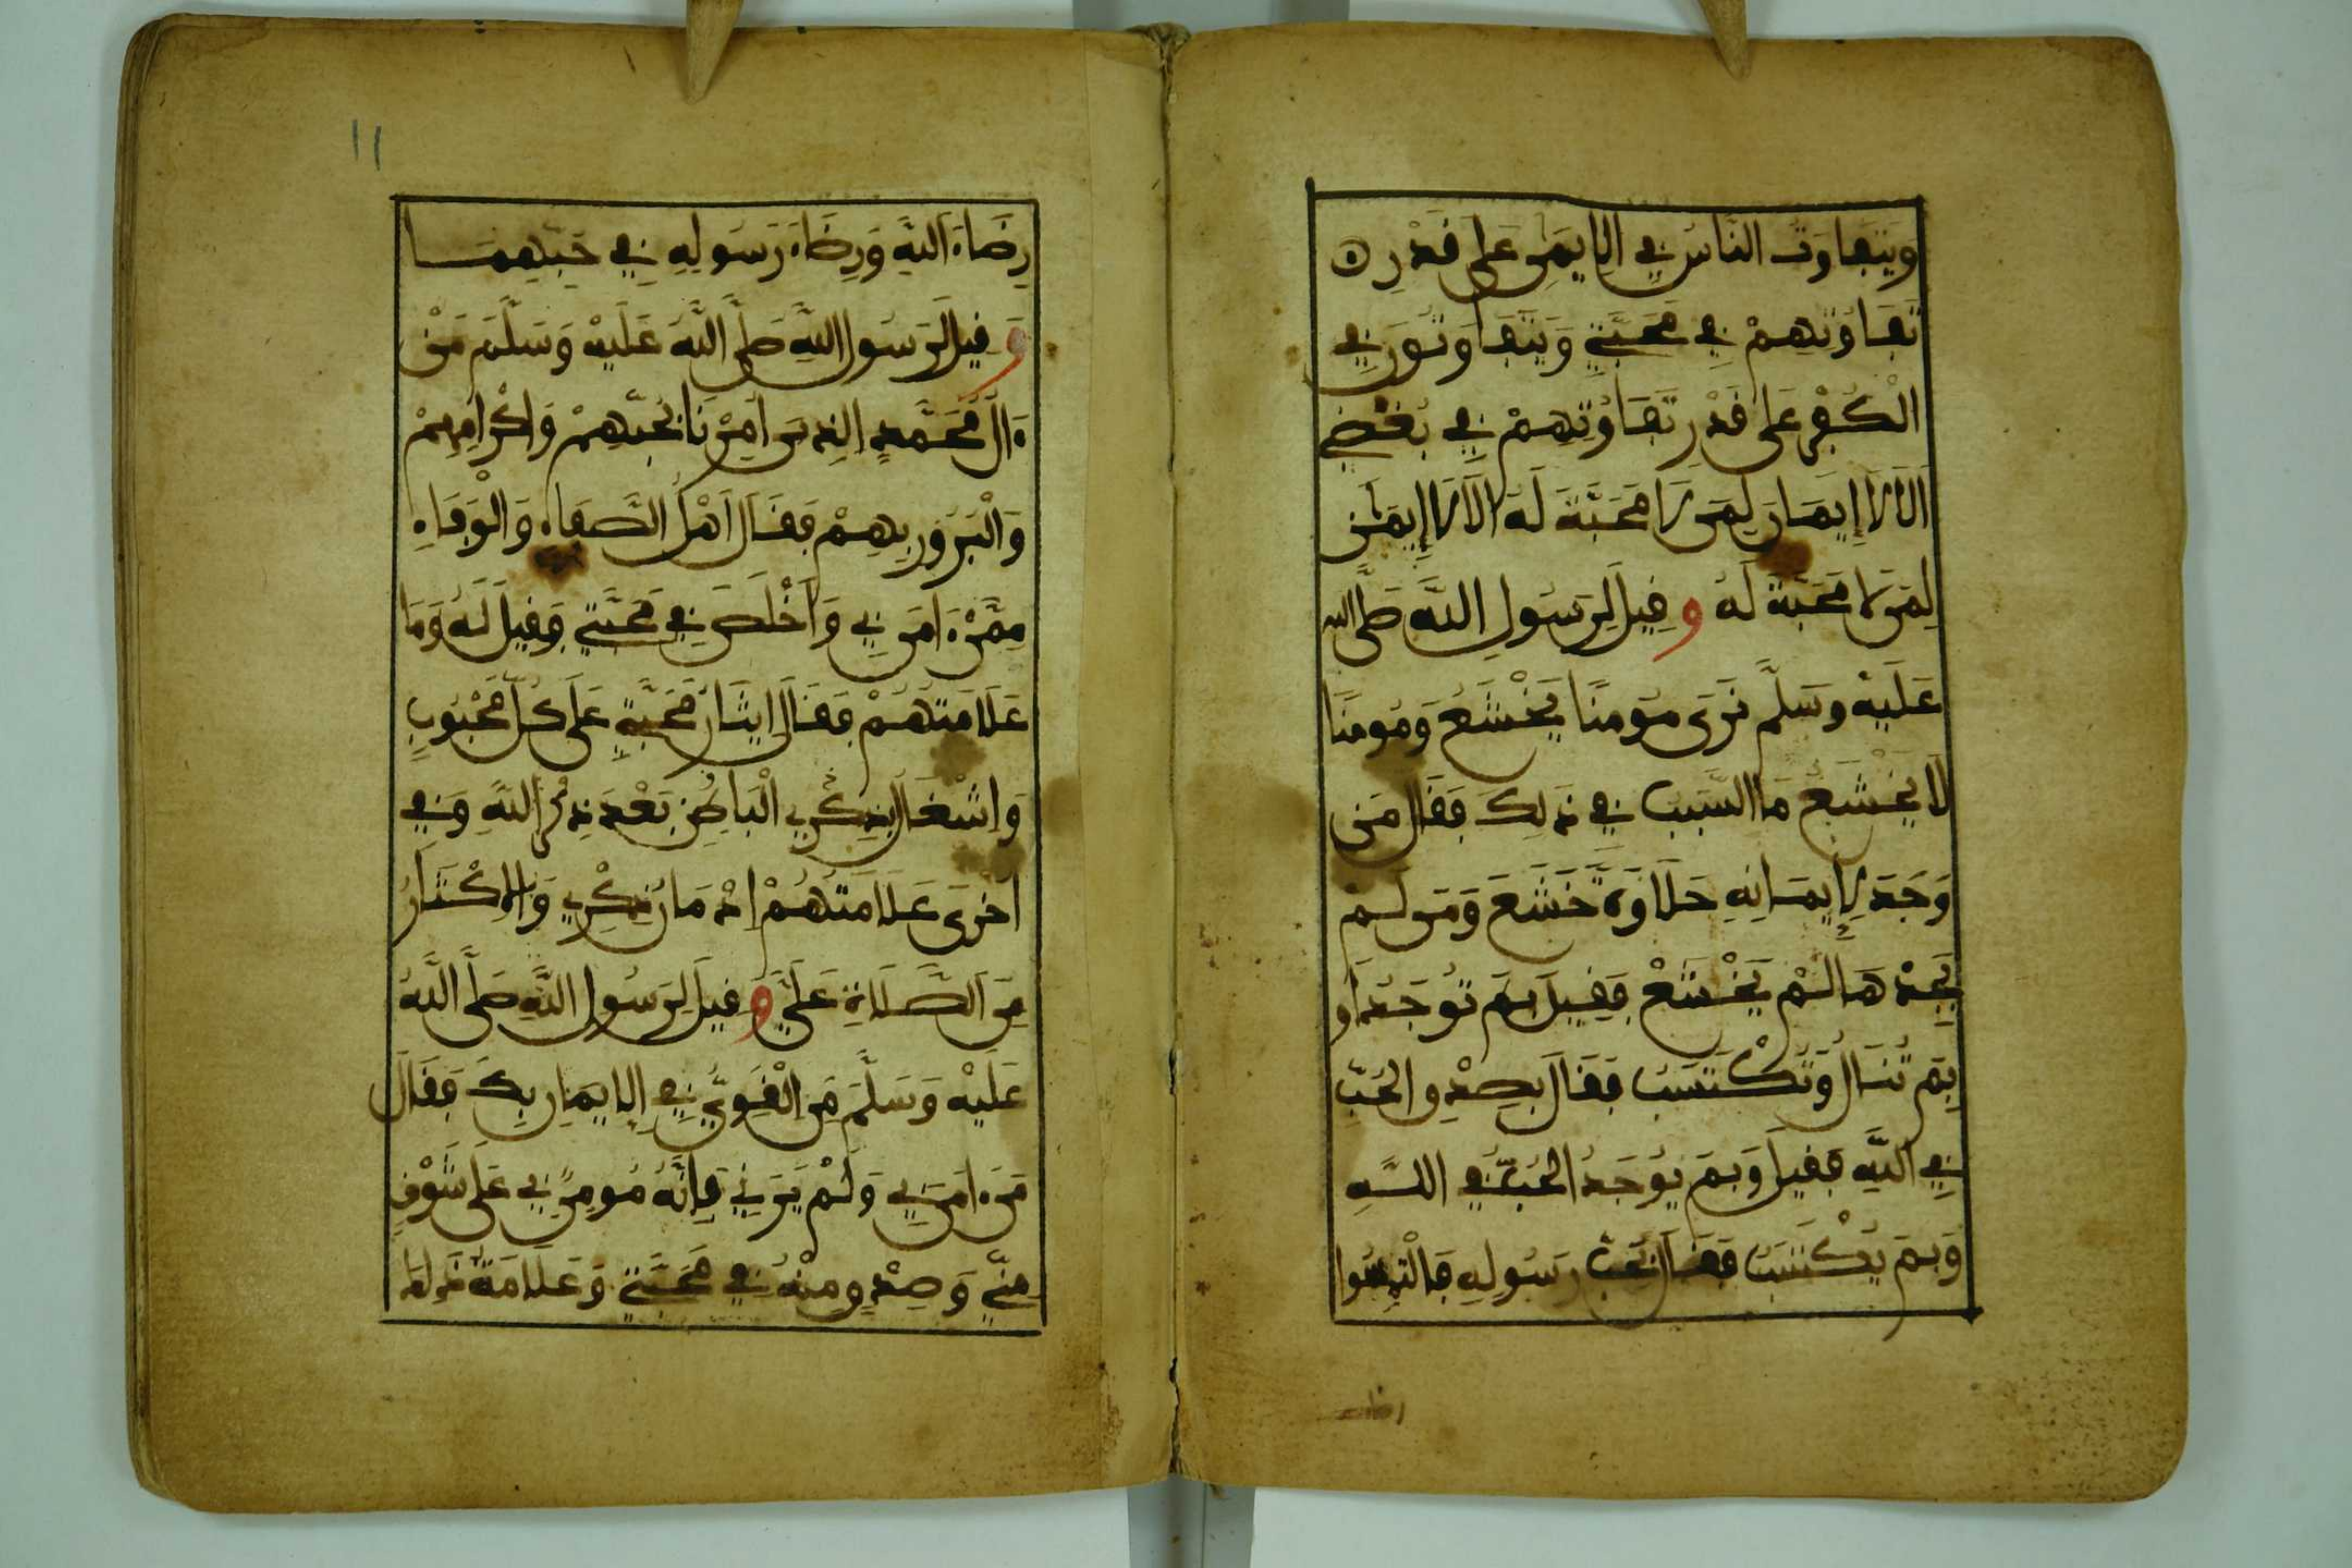 ويتفاوت الناس في الايمن على قدر
تفاوتهم في محبتي ويتفاوتون في
الكفر على قدر تفاوتهم في بغضي
الا لا إيمان لمن لا محبة له الا لا إيمن
لمن لا محبة له وقيل لرسول الله صلى الله
عليه وسلم نرى مومنا يخشع ومومنا
لا يخشع ما السبب في ذلك فقال من
وجد لإيمانه حلاوة خشع ومن لم
يجدها لم يخشع فقيل بم توجد او
بم تنال وتكتسب فقال بصدق الحب
في الله فقيل وبم يوجد الحب في الله
وبم يكتسب فقال بحب رسوله فالتمسوا
رضاء
١١
رضاء الله ورضاء رسوله في حبهما
وقيل لرسول الله صلى الله عليه وسلم من
ءال محمد الذين امرنا بحبهم واكرامهم
والبرور بهم فقال اهل الصفاء والوفاء
ممن ءامن بي واخلص في محبتي فقيل له وما
علامتهم فقال إيثار محبتي على كل محبوب
واشغال بذكري الباطن بعد ذكر الله وفي
اخرى علامتهم ادمان ذكري والاكثار
من الصلاة علي وقيل لرسول الله صلى الله
عليه وسلم من القوي في الايمان بك فقال
من ءامن بي ولم يرني فإنه مومن بي على شوق
مني وصدق منه في محبتي وعلامة ذلك